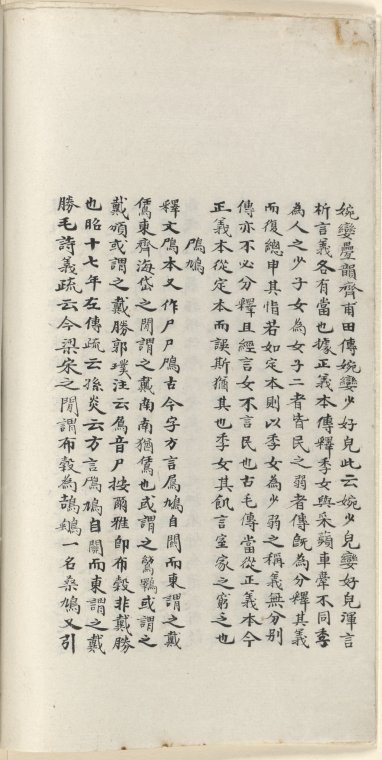 婉孌疊韻齊甫田傳婉孌少好皃此云婉少皃孌好皃渾言
析言義各有當也據正義本傳釋季女與采蘋車舝不同季
為人之少子女為女子二者皆民之弱者傳既為分釋其義
而復總申其指若如定本則以季女為少弱之稱義無分別
傳亦不必分釋且經言女不言民也古毛傳當從正義本今
正義本從定本而誤斯猶其也季女其飢言室家之窮乏也
鳲鳩
釋文鳲本又作尸尸鳲古今字方言鳲鳩自關而東謂之戴
鵀東齊海岱之間謂之戴南南猶鵀也或謂之鶭鸅或謂之
戴頒或謂之戴勝郭璞注云鳲音尸按爾雅即布穀非戴勝
也昭十七年左傳疏云孫炎云方言鳲鳩自關而東謂之戴
勝毛詩義疏云今梁宋之間謂布穀為鴶鵴一名桑鳩又引